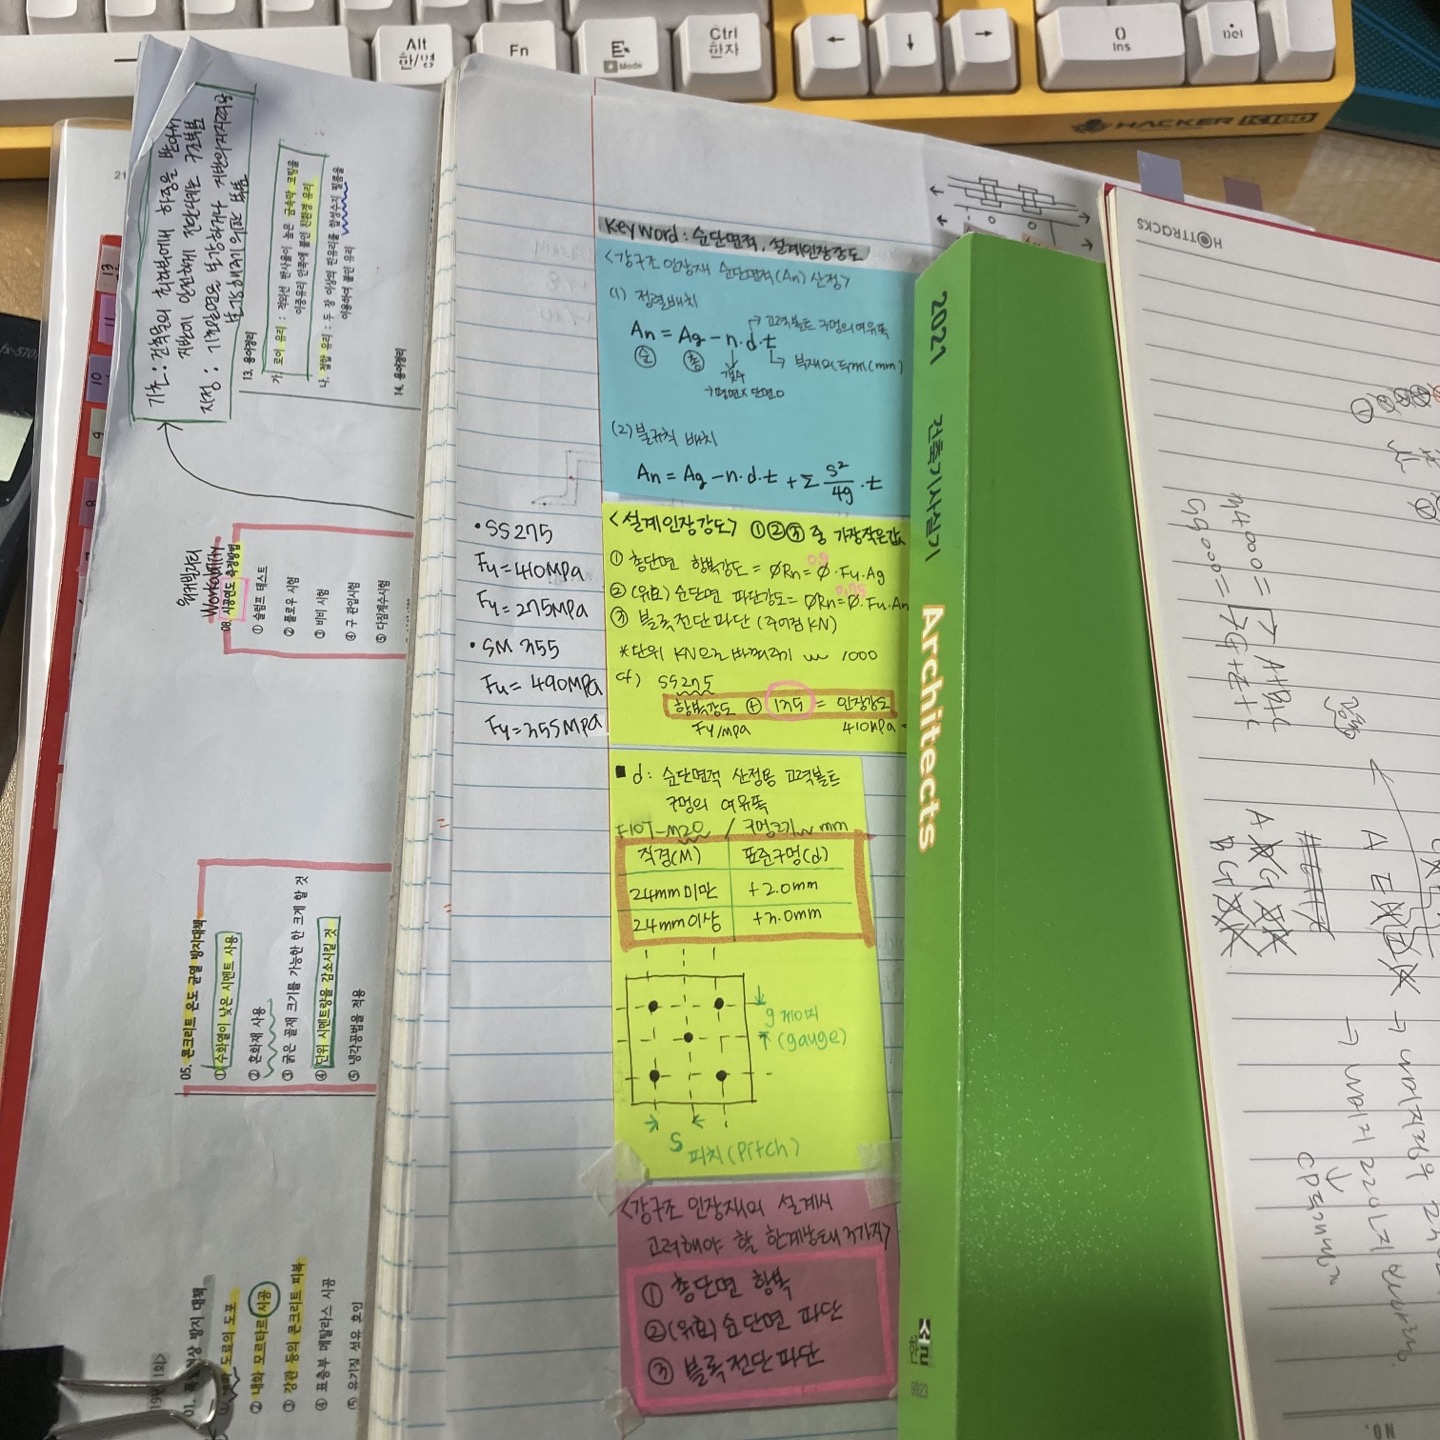 Alt
한/영
Fn
Mode
Ctrl
한자
←
↓
→
0
Ins
Del
HACKER K180
기초 : 건축물의 최하부에서 하중을 받아서
지반에 안전하게 전달시키는 구조부분
지정 : 기초판을 보강하거나 지반의 지지력을
보강하기 위한 부분
13. 용어정리
가. 로이 유리 : 적외선 반사율이 높은 금속막 코팅을
이중유리 안쪽에 붙인 친환경 유리
나. 접합 유리 : 두 장 이상의 판유리를 합성수지 필름을
이용하여 붙인 유리
14. 용어정리
워커빌리티
Workability
08. 시공연도 측정방법
① 슬럼프 테스트
② 플로우 시험
③ 비비 시험
④ 구 관입시험
⑤ 다짐계수시험
05. 콘크리트 온도 균열 방지대책
① 수화열이 낮은 시멘트 사용
② 혼화재 사용
③ 굵은 골재 크기를 가능한 한 크게 할 것
④ 단위 시멘트량을 감소시킬 것
⑤ 냉각공법을 적용
방지 대책
도료의 도포
② 내화 모르타르 시공
③ 강관 등의 콘크리트 피복
④ 표층부 메탈라스 시공
⑤ 유기질 섬유 혼입
• SS275
Fu=410MPa
Fy=275MPa
• SM 355
Fu=490MPa
Fy=355MPa
Keyword : 순단면적, 설계인장강도
<강구조 인장재 순단면적(An) 산정>
(1) 정렬배치
An = Ag - n·d·t
순
총
개수
고력볼트 구멍의 여유폭
부재의 두께(mm)
(2) 불규칙 배치
An = Ag - n·d·t + Σ s²/4g · t
<설계인장강도> ①②③ 중 가장작은값
① 총단면 항복강도 = ØRn = Ø·Fy·Ag
0.9
② (유효) 순단면 파단강도 = ØRn = Ø·Fu·An
0.75
③ 블록전단파단 (주어짐 KN)
*단위 KN으로 바꿔주기 1000
cf) SS275
항복강도 + 135 = 인장강도
Fy/mpa 410mpa
■ d : 순단면적 산정용 고력볼트
구멍의 여유폭
F10T-M20 / 구멍크기 mm
직경(M) 표준구멍(d)
24mm미만 +2.0mm
24mm이상 +3.0mm
g 게이지
(gauge)
S
피치(Pitch)
<강구조 인장재의 설계시
고려해야 할 한계상태 3가지>
① 총단면 항복
② (유효) 순단면 파단
③ 블록전단파단
2021 건축기사실기
Architects
HOTTRACKS
NO.